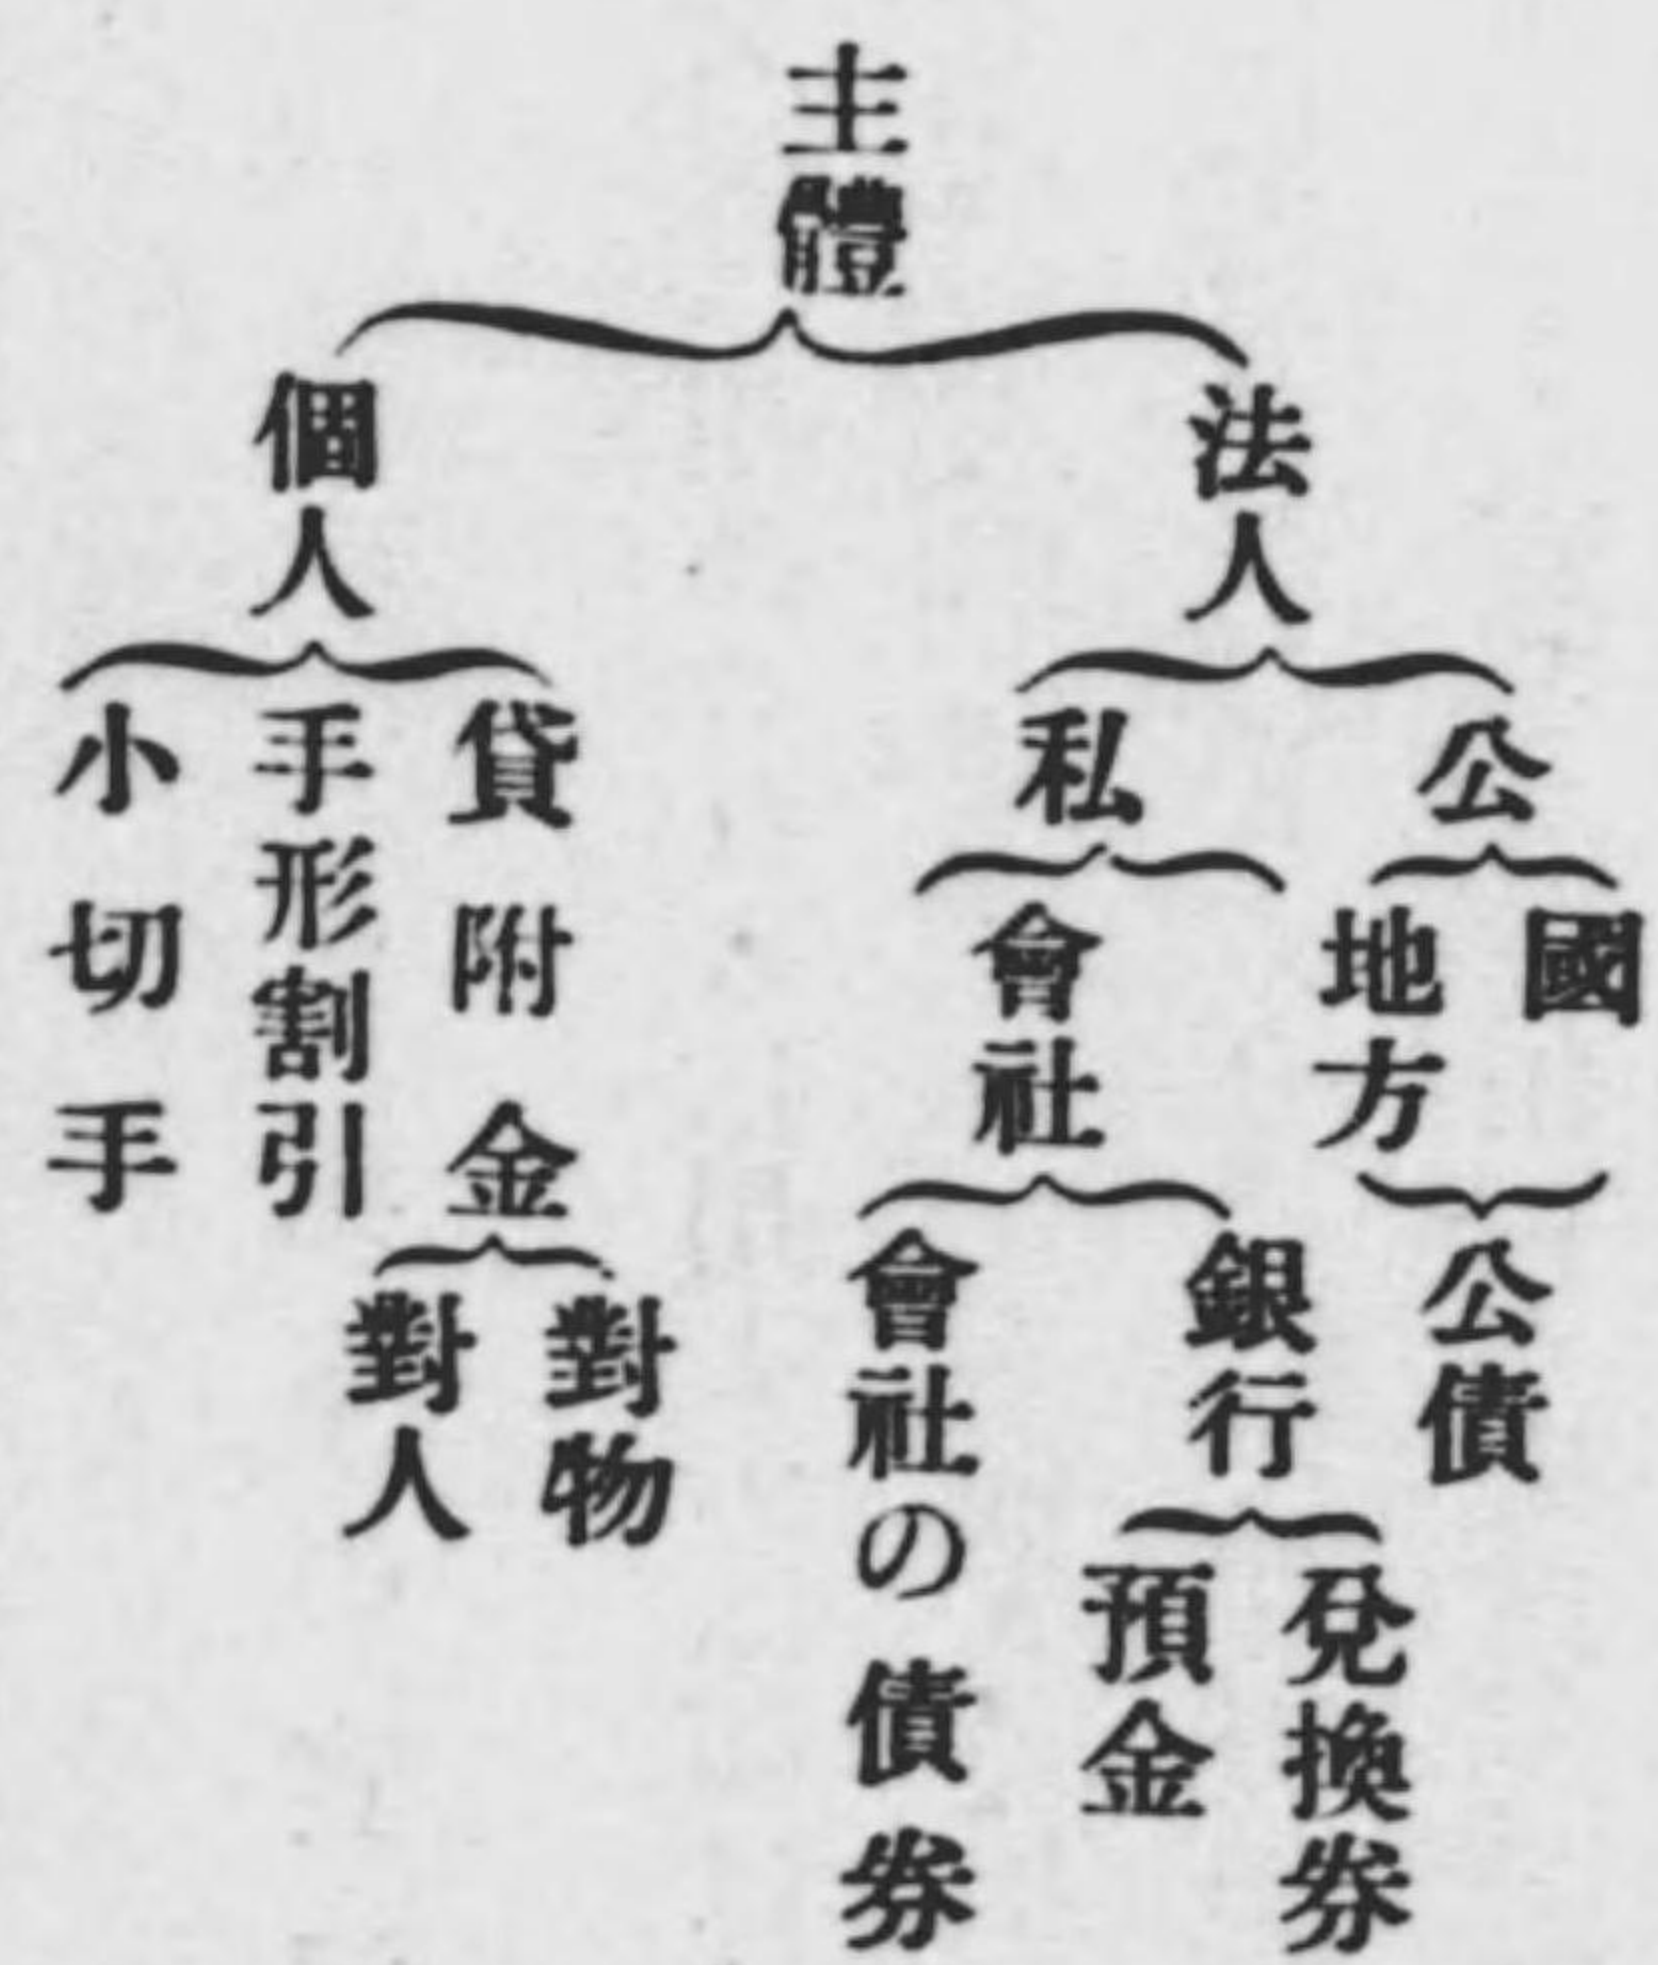 主體
法人
公
國
地方
公債
私
會社
銀行
兌換券
預金
會社の債券
個人
貸附金
對物
對人
手形割引
小切手